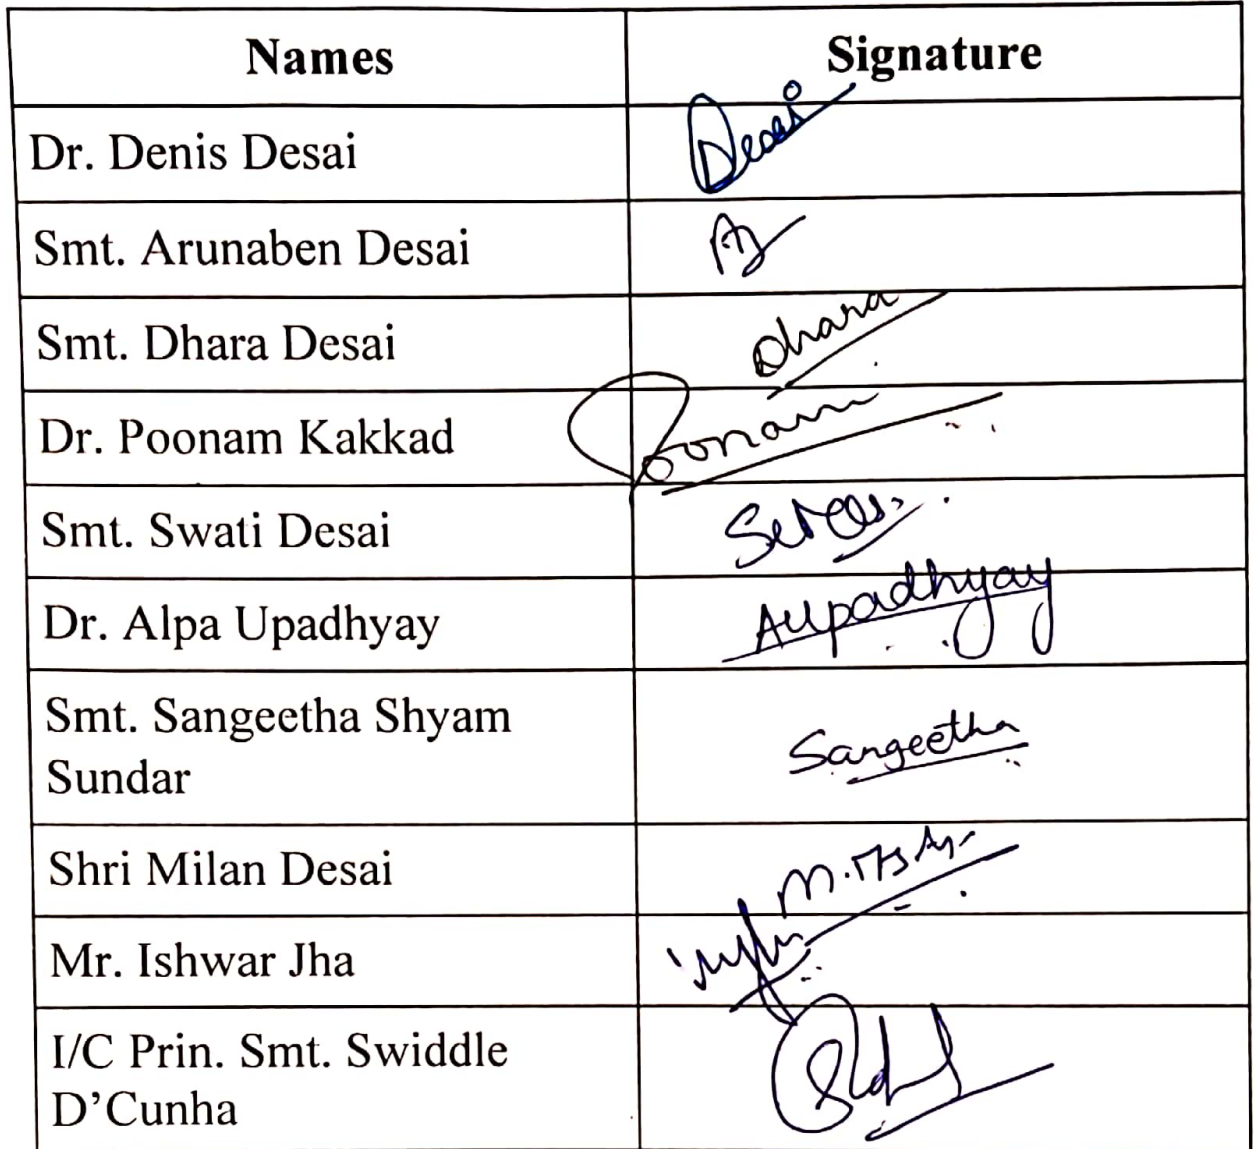 Names Signature
Dr. Denis Desai Desai
Smt. Arunaben Desai
Smt. Dhara Desai Dhara
Dr. Poonam Kakkad Poonam
Smt. Swati Desai
Dr. Alpa Upadhyay AUpadhyay
Smt. Sangeetha Shyam
Sundar
Sangeetha
Shri Milan Desai
Mr. Ishwar Jha
I/C Prin. Smt. Swiddle
D’Cunha